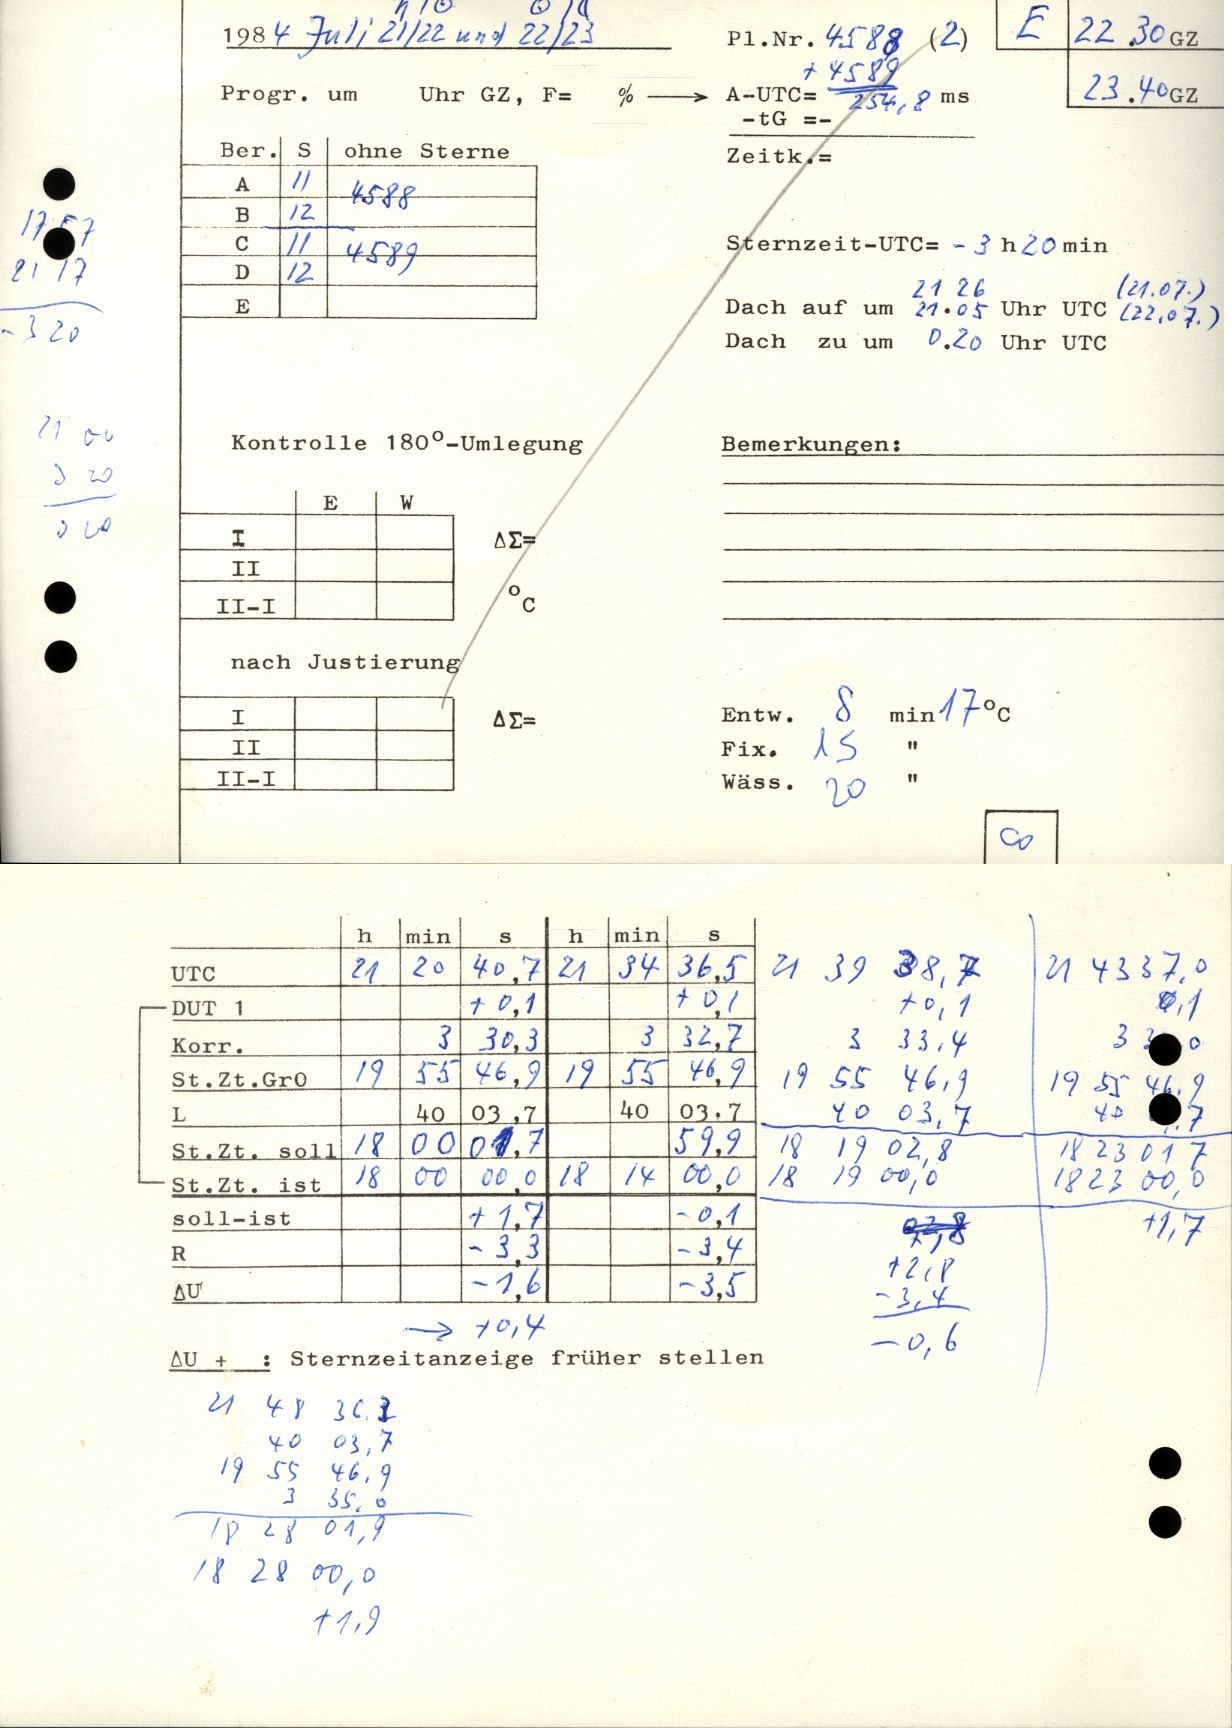 1984 Juli 21/22 und 22/23
Pl.Nr. 4588 (2)
+ 4589
E 22.30 GZ
23.40 GZ
Progr. um Uhr GZ, F= % → A-UTC= 254,8 ms
-tG =-
Zeitk.=
Ber. S ohne Sterne
A 11
4588
B 12
C 11
4589
D 12
E
17 57
21 17
-3 20
Sternzeit-UTC= -3 h 20 min
21 26 (21.07.)
Dach auf um 21.05 Uhr UTC (22.07.)
Dach zu um 0.20 Uhr UTC
21 00
3 20
0 20
Kontrolle 180°-Umlegung
Bemerkungen:
E W
I ΔΣ=
II
II-I °C
nach Justierung
I ΔΣ=
II
II-I
Entw. 8 min 17°C
Fix. 15 "
Wäss. 20 "
Co
h min s h min s
UTC 21 20 40,7 21 34 36,5 21 39 38,7 21 43 37,0
DUT 1 +0,1 +0,1 +0,1 0,1
Korr. 3 30,3 3 32,7 3 33,4 3 3 0
St.Zt.Gr0 19 55 46,9 19 55 46,9 19 55 46,9 19 55 46,9
L 40 03,7 40 03,7 40 03,7 40 ,7
St.Zt. soll 18 00 01,7 59,9 18 19 02,8 18 23 01 7
St.Zt. ist 18 00 00,0 18 14 00,0 18 19 00,0 18 23 00,0
soll-ist +1,7 -0,1 +1,7
R -3,3 -3,4 +2,8
ΔU -1,6 -3,5 -3,4
→ +0,4 -0,6
ΔU + : Sternzeitanzeige früher stellen
21 48 36.1
40 03,7
19 55 46,9
3 35,0
18 28 01,9
18 28 00,0
+1,9